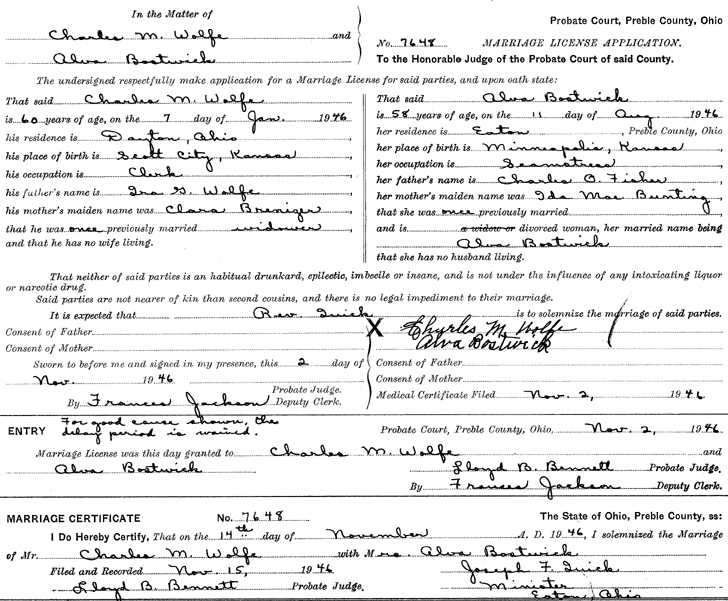 In the Matter of
Charles M. Wolfe and
Alva Bostwick
Probate Court, Preble County, Ohio
No. 7648 MARRIAGE LICENSE APPLICATION.
To the Honorable Judge of the Probate Court of said County.
The undersigned respectfully make application for a Marriage License for said parties, and upon oath state:
That said Charles M. Wolfe
is 60 years of age, on the 7 day of Jan. 1946
his residence is Dayton, Ohio
his place of birth is Scott City, Kansas
his occupation is Clerk
his father's name is Ira G. Wolfe
his mother's maiden name was Clara Brenizer
that he was once previously married widower
and that he has no wife living.
That said Alva Bostwick
is 58 years of age, on the 11 day of Aug. 1946
her residence is Eaton, Preble County, Ohio
her place of birth is Minneapolis, Kansas
her occupation is Seamstress
her father's name is Charles O. Fisher
her mother's maiden name was Ida Mae Bunting
that she was once previously married
and is a widow or divorced woman, her married name being
Alva Bostwick
that she has no husband living.
That neither of said parties is an habitual drunkard, epilectic, imbecile or insane, and is not under the influence of any intoxicating liquor
or narcotic drug.
Said parties are not nearer of kin than second cousins, and there is no legal impediment to their marriage.
It is expected that Rev. Quick is to solemnize the marriage of said parties.
Consent of Father
Consent of Mother
Sworn to before me and signed in my presence, this 2 day of
Nov. 1946
Probate Judge.
By Frances Jackson Deputy Clerk.
X Charles M. Wolfe
Alva Bostwick
Consent of Father
Consent of Mother
Medical Certificate Filed Nov. 2, 1946
ENTRY For good cause shown, the
delay period is waived.
Probate Court, Preble County, Ohio, Nov. 2, 1946.
Marriage License was this day granted to Charles M. Wolfe and
Alva Bostwick
Lloyd B. Bennett Probate Judge.
By Frances Jackson Deputy Clerk.
MARRIAGE CERTIFICATE No. 7648 The State of Ohio, Preble County, ss:
I Do Hereby Certify, That on the 14th day of November A. D. 1946, I solemnized the Marriage
of Mr. Charles M. Wolfe with Mrs. Alva Bostwick
Filed and Recorded Nov. 15, 1946
Lloyd B. Bennett Probate Judge.
Joseph F. Quick
Minister
Eaton, Ohio